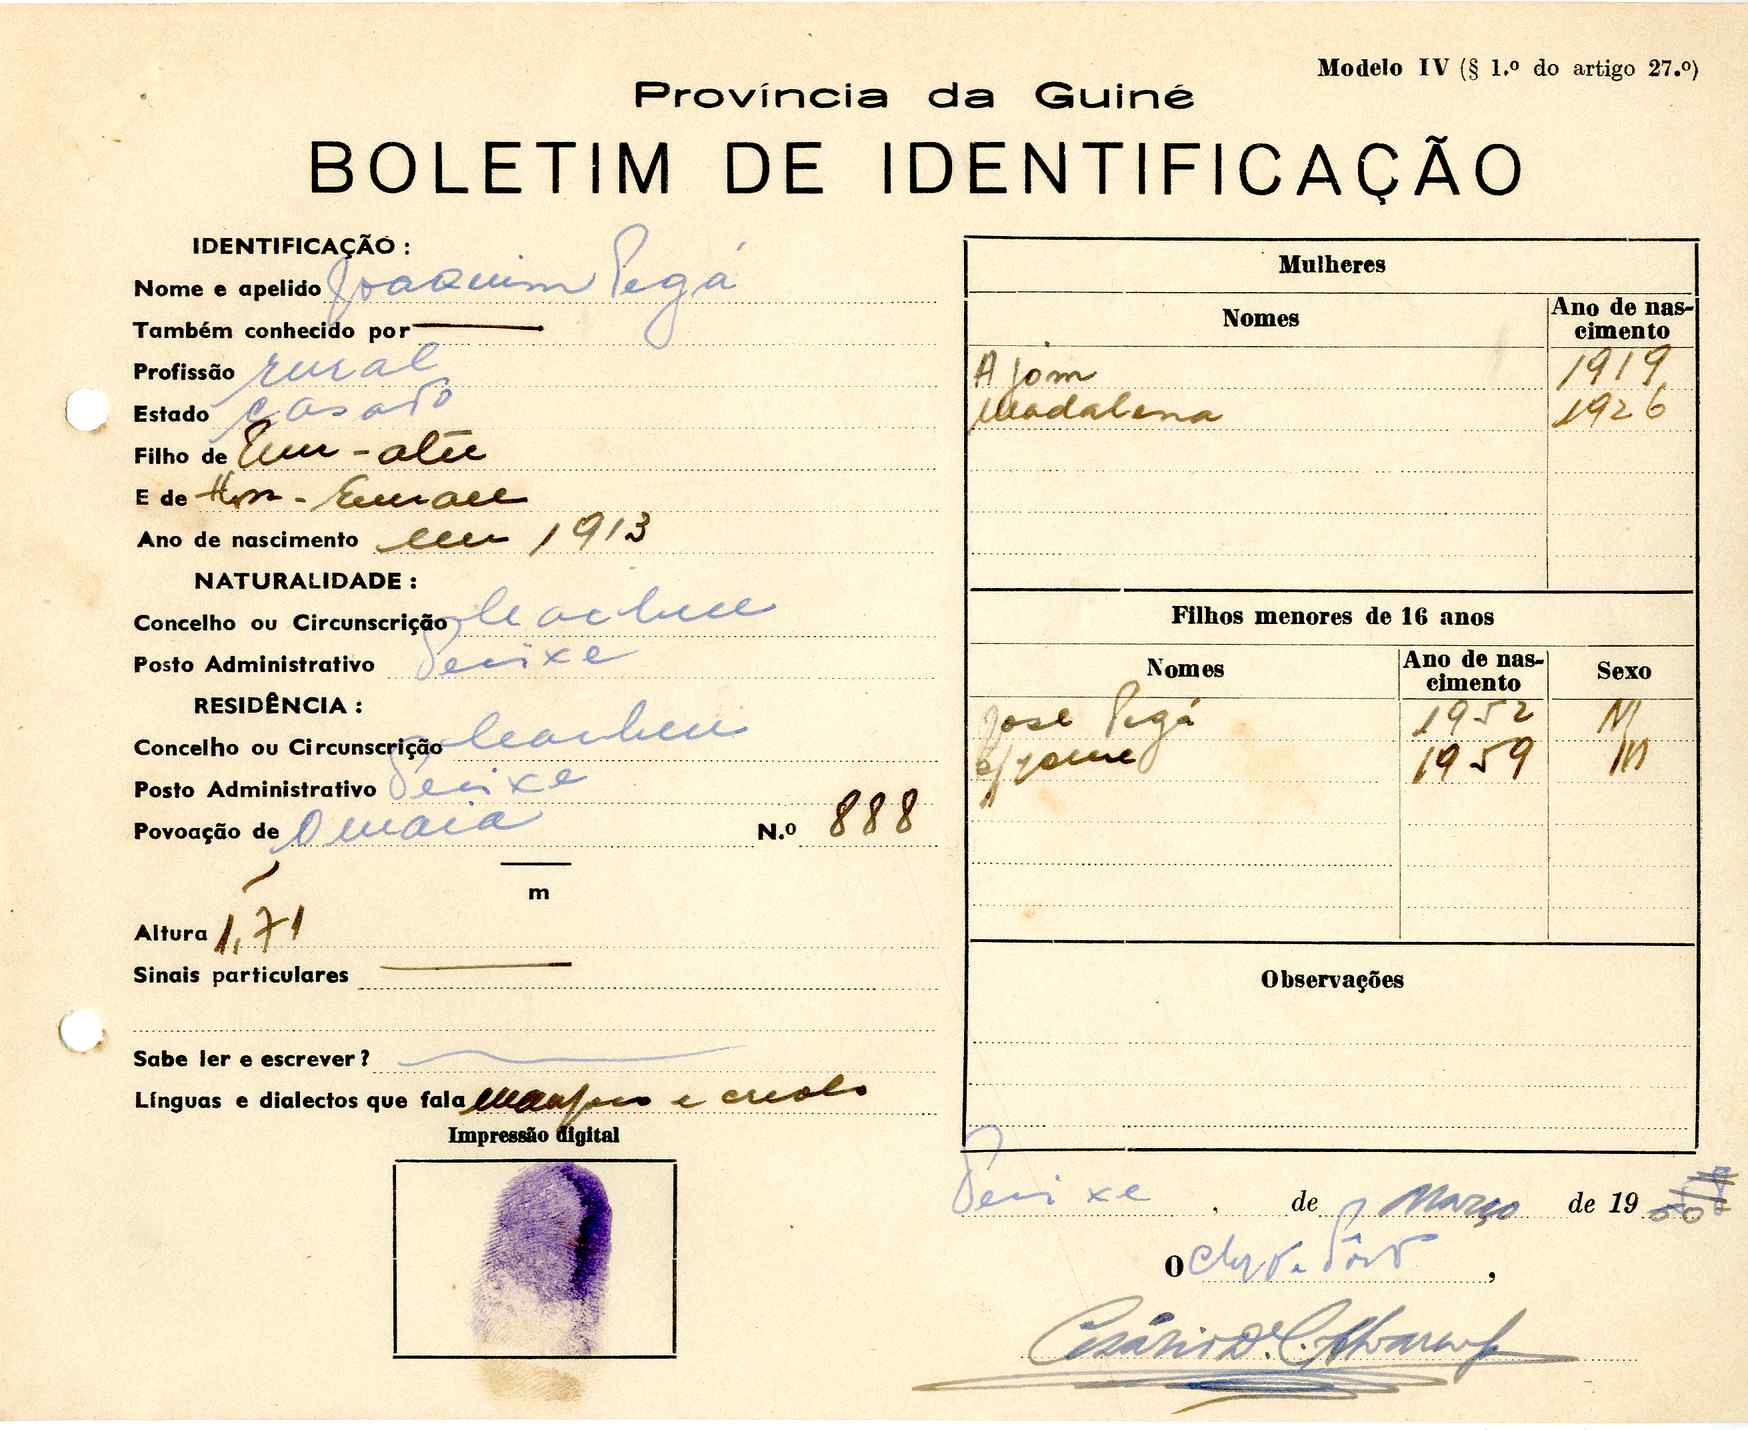 Modelo IV (§ 1.º do artigo 27.º)
Província da Guiné
BOLETIM DE IDENTIFICAÇÃO
IDENTIFICAÇÃO :
Nome e apelido Joaquim Pegá
Também conhecido por
Profissão rural
Estado casado
Filho de
E de
Ano de nascimento em 1913
NATURALIDADE :
Concelho ou Circunscrição Cacheu
Posto Administrativo Pecixe
RESIDÊNCIA :
Concelho ou Circunscrição Cacheu
Posto Administrativo Pecixe
Povoação de N.º 888
m
Altura 1,71
Sinais particulares
Sabe ler e escrever ?
Línguas e dialectos que fala e creolo
Impressão digital
Mulheres
Nomes Ano de nas-
cimento
A Jom 1919
Madalena 1926
Filhos menores de 16 anos
Nomes Ano de nas-
cimento Sexo
José Pegá 1952 M
1959 M
Observações
Pecixe , de Março de 19
O Chefe de Pôsto ,
Cesário D. C. Alvarenga